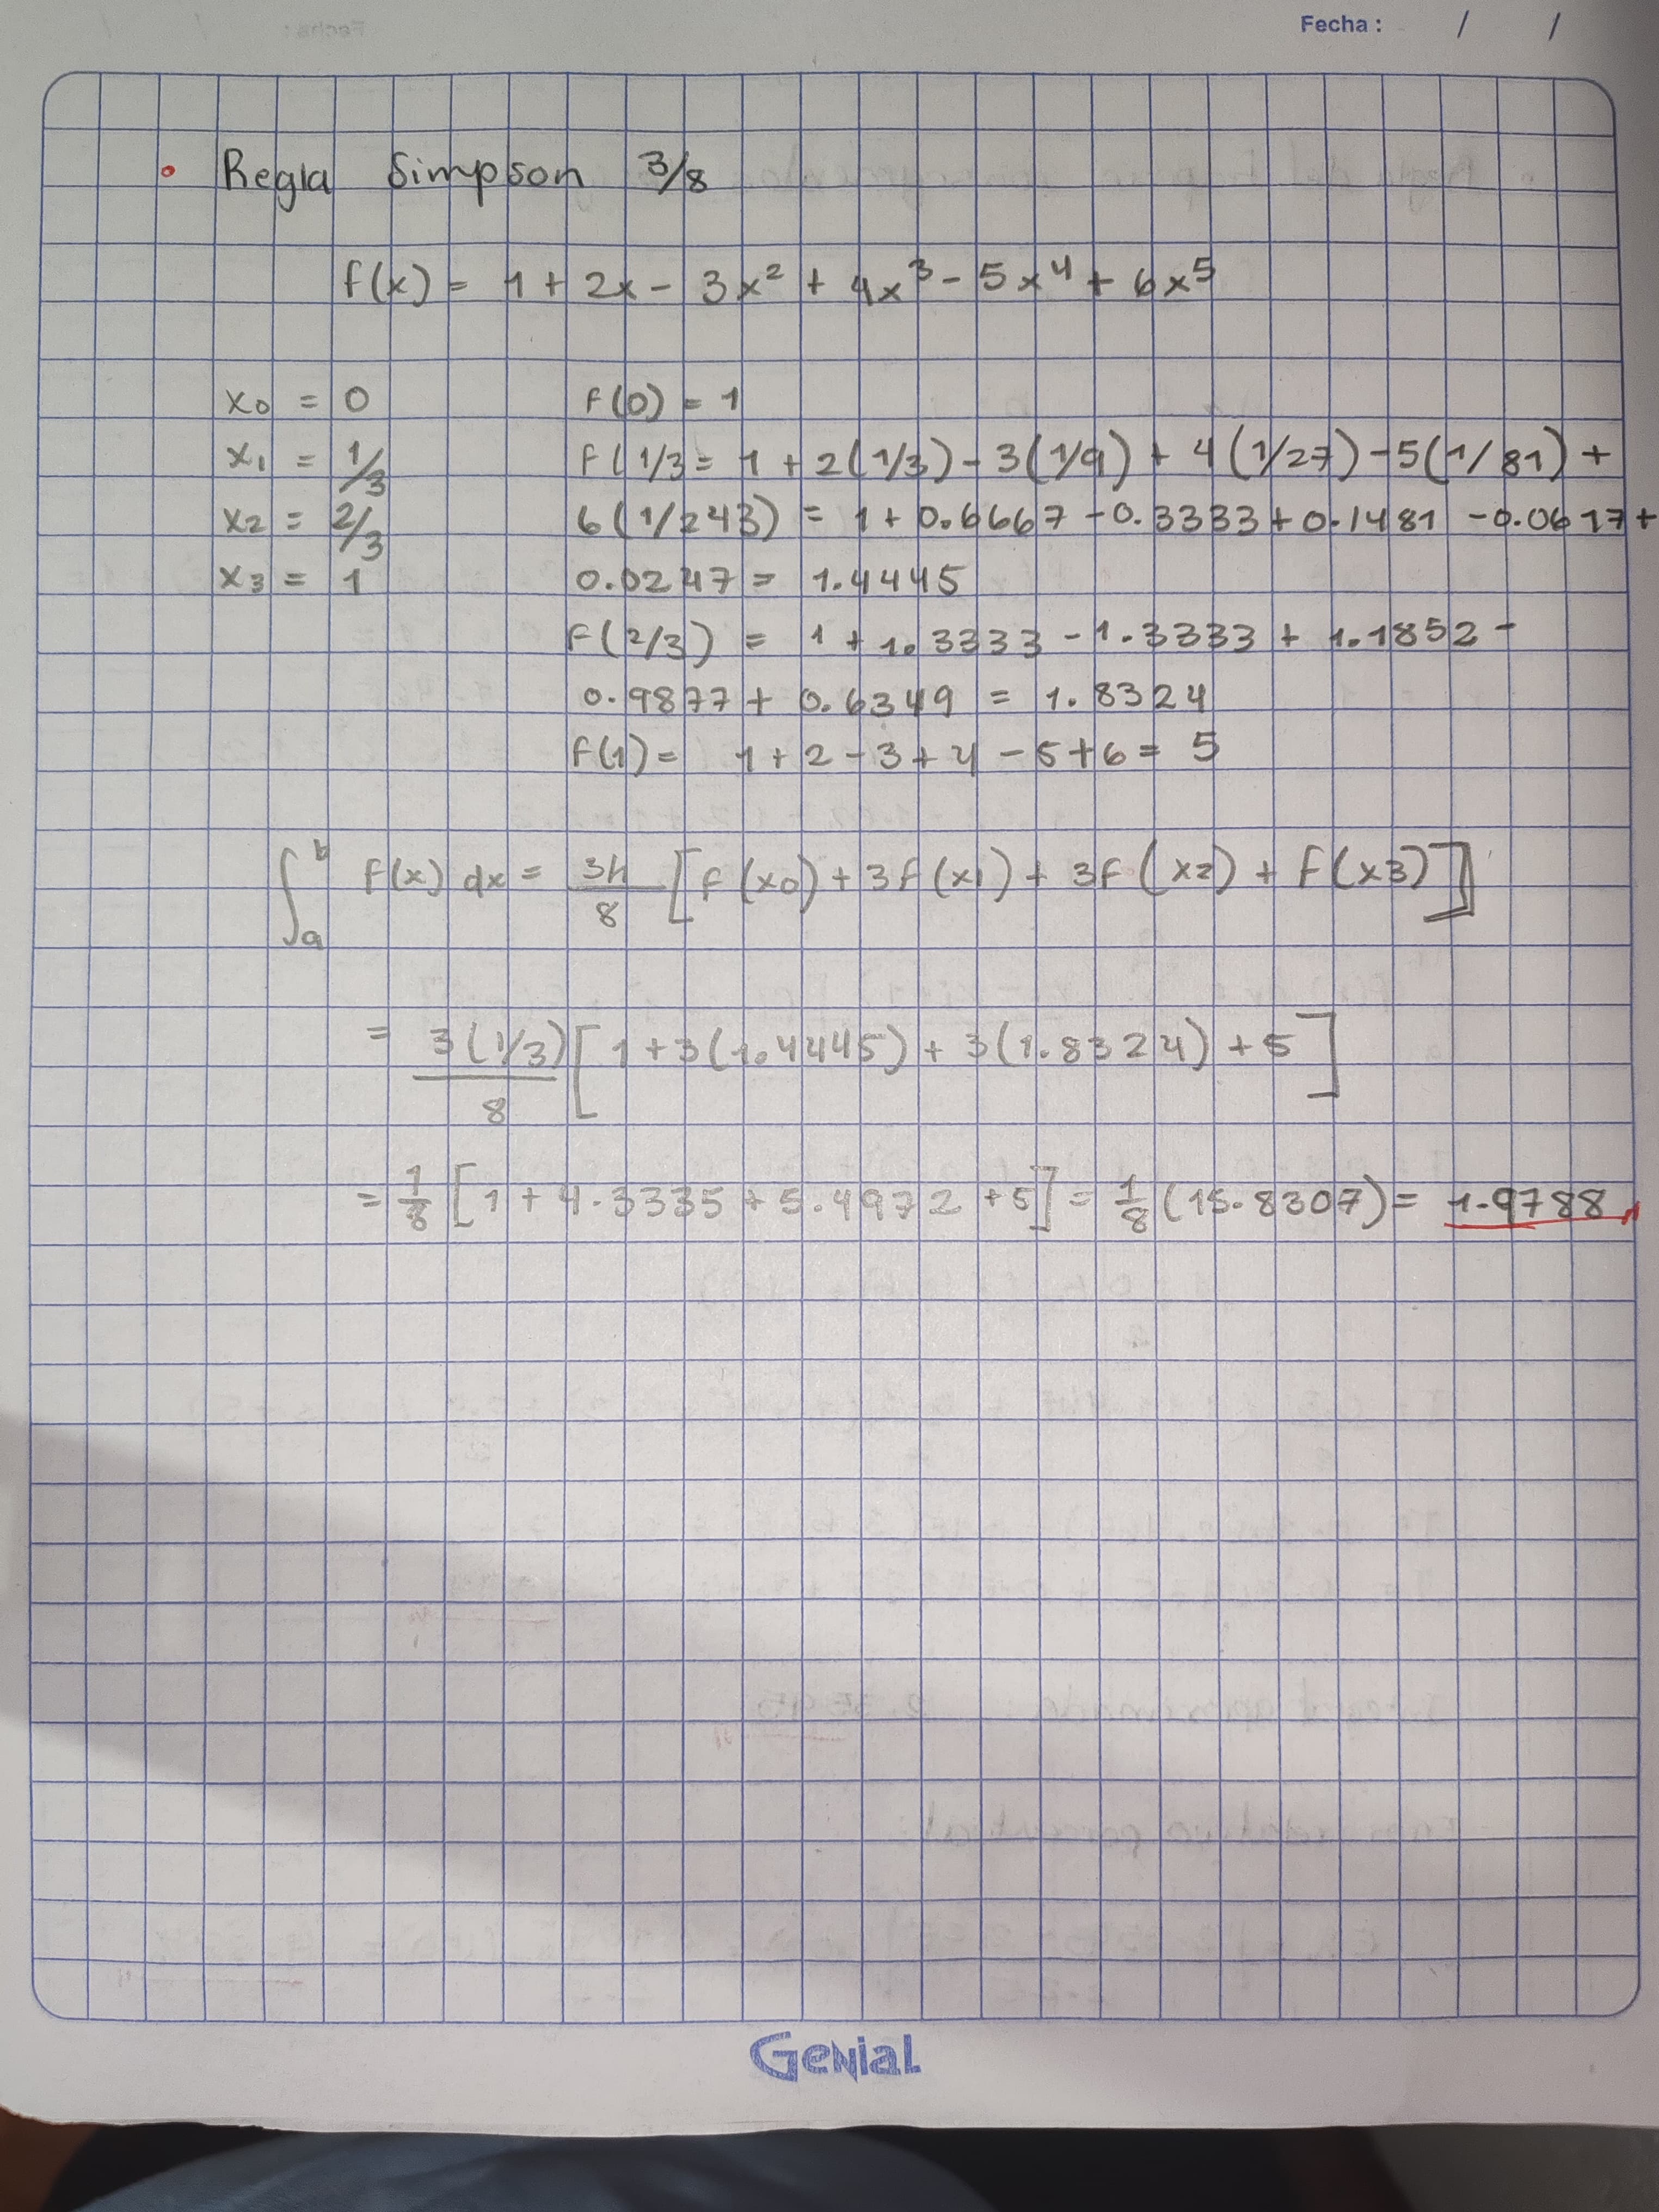 Fecha : / /
• Regla Simpson 3/8
f(x) = 1 + 2x - 3x² + 4x³ - 5x⁴ + 6x⁵
x0 = 0 f(0) = 1
x1 = 1/3 f(1/3 = 1 + 2(1/3) - 3(1/9) + 4(1/27) - 5(1/81) +
x2 = 2/3 6(1/243) = 1 + 0.6667 - 0.3333 + 0.1481 - 0.0617 +
x3 = 1 0.0247 = 1.4445
f(2/3) = 1 + 1.3333 - 1.3333 + 1.1852 -
0.9877 + 0.6349 = 1.8324
f(1) = 1 + 2 - 3 + 4 - 5 + 6 = 5
∫ₐᵇ f(x) dx = 3h/8 [f(x0) + 3f(x1) + 3f(x2) + f(x3)]
= 3(1/3)/8 [1 + 3(1.4445) + 3(1.8324) + 5]
= 1/8 [1 + 4.3335 + 5.4972 + 5] = 1/8 (15.8307) = 1.9788
Genial